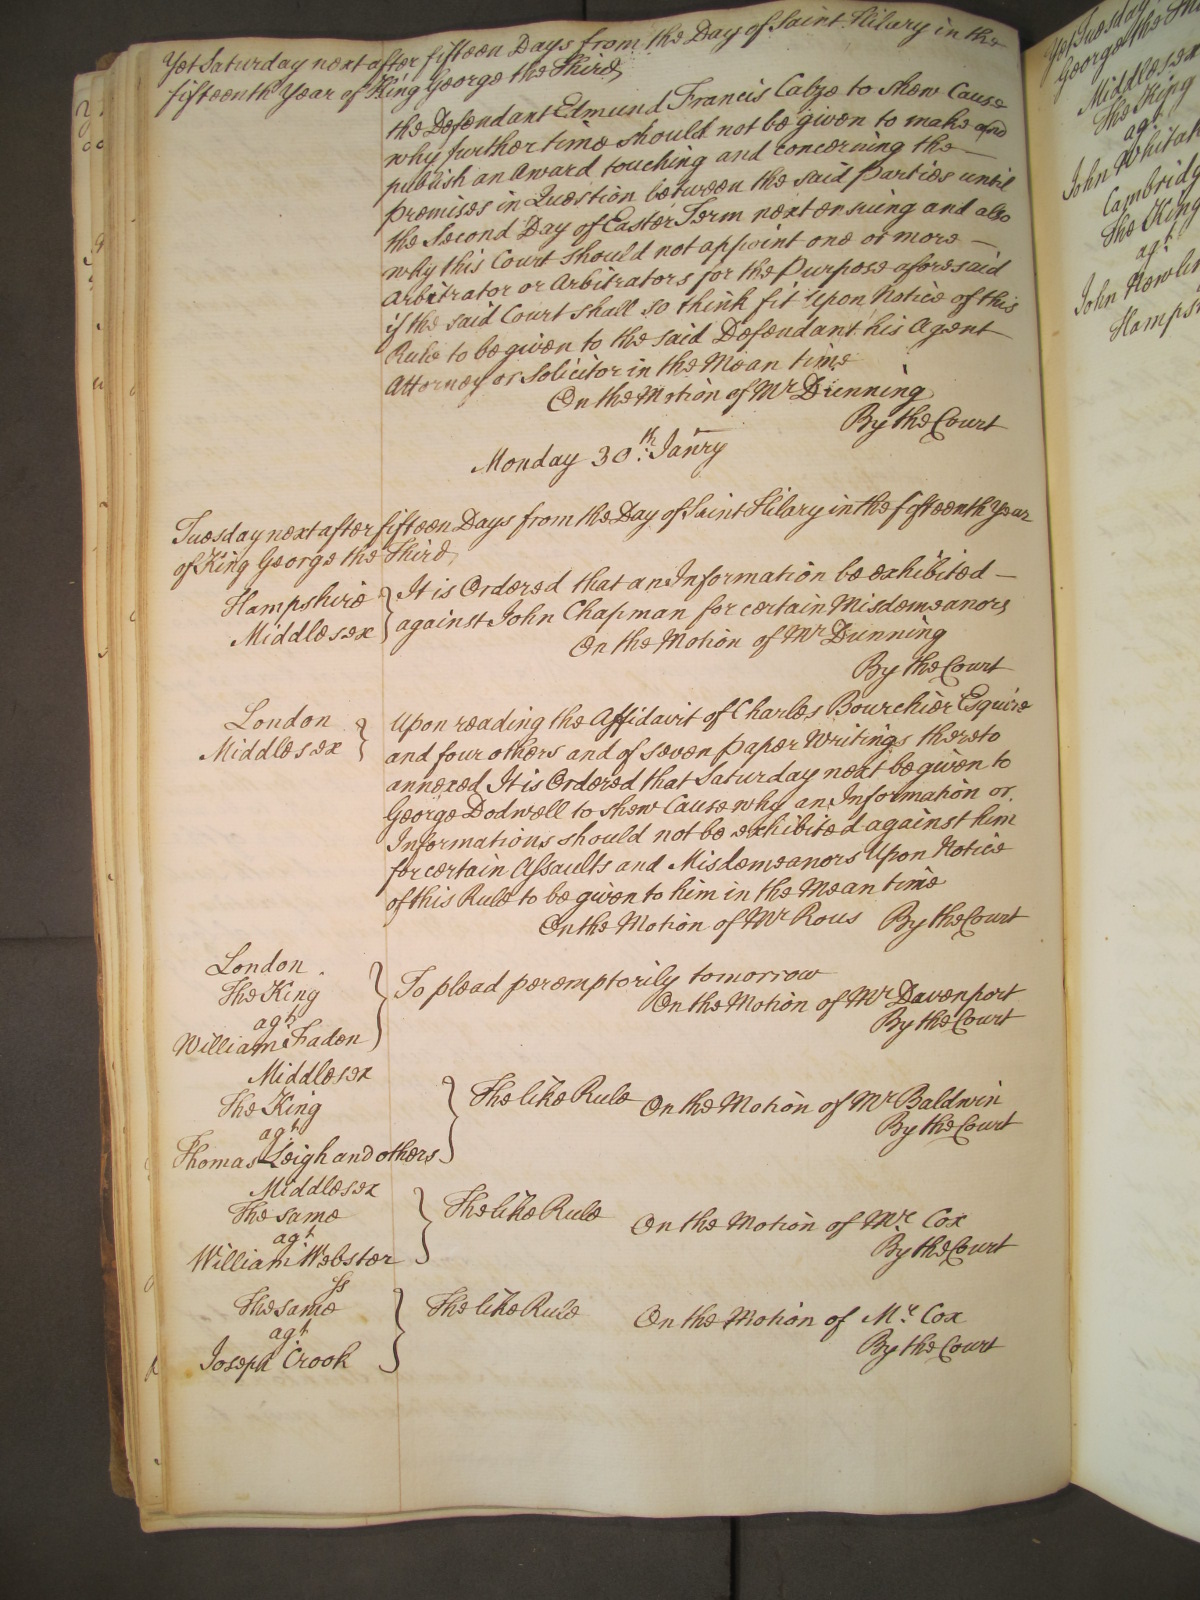 Yet Saturday next after fifteen Days from the Day of Saint Hilary in the
fifteenth Year of King George the Third
the Defendant Edmund Francis Calze to shew Cause
why further time should not be given to make and
publish an Award touching and concerning the —
premises in Question between the said Parties until
the Second Day of Easter Term next ensuing and also
why this Court should not appoint one or more —
Arbitrator or Arbitrators for the Purpose aforesaid
if the said Court shall so think fit Upon Notice of this
Rule to be given to the said Defendant his Agent
Attorney or Solicitor in the Mean time
On the Motion of Mr Dunning
By the Court
Monday 30th Janry
Tuesday next after fifteen Days from the Day of Saint Hilary in the fifteenth Year
of King George the Third
Hampshire
Middlesex
It is Ordered that an Information be exhibited —
against John Chapman for certain Misdemeanors
On the Motion of Mr Dunning
By the Court
London
Middlesex
Upon reading the Affidavit of Charles Bourchier Esquire
and four others and of seven paper Writings thereto
annexed It is Ordered that Saturday next be given to
George Dodwell to shew Cause why an Information or
Informations should not be exhibited against him
for certain Assaults and Misdemeanors Upon Notice
of this Rule to be given to him in the Mean time
On the Motion of Mr Rous By the Court
London
The King
agt
William Faden
To plead peremptorily tomorrow
On the Motion of Mr Davenport
By the Court
Middlesex
The King
agt
Thomas Leigh and others
The like Rule On the Motion of Mr Baldwin
By the Court
Middlesex
The same
agt
William Webster
The like Rule On the Motion of Mr Cox
By the Court
ss
The same
agt
Joseph Crook
The like Rule On the Motion of Mr Cox
By the Court
Yet Tuesday
George the
Middlesex
The King
agt
John
The King
agt
John